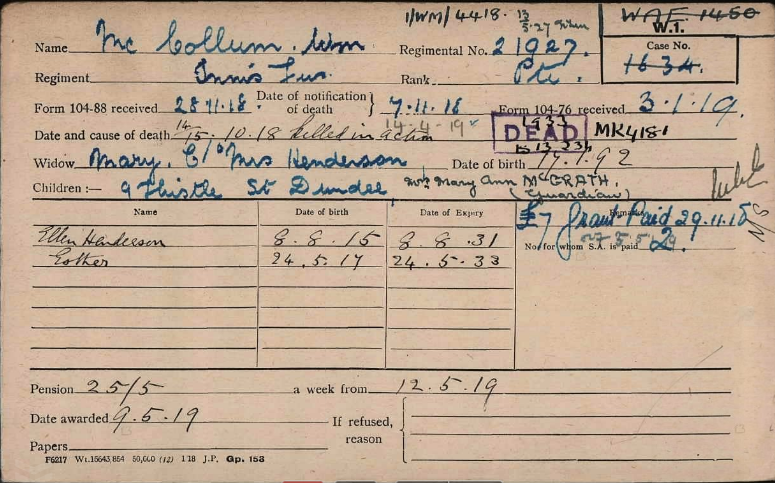 1/WM/4418. 13/5.27
WAF 1450
W.1.
Name Mc Collum. Wm Regimental No. 21927.
Case No.
1634.
Regiment Innis Fus. Rank Pte.
Form 104-88 received 28.11.18. Date of notification of death } 7.11.18 Form 104-76 received 3.1.19.
14-4-19
Date and cause of death 14/15.10.18 killed in action DEAD MK4181
Widow Mary, C/o Mrs Henderson Date of birth 17.1.92
Children :— 9 Thistle St Dundee, Mrs Mary Ann McGRATH. (Guardian)
Name Date of birth Date of Expiry Remarks
£7 Grant Paid 29.11.18
Ellen Henderson 8.8.15 8.8.31 No. for whom S.A. is paid 2.
Esther 24.5.17 24.5.33
Pension 25/5 a week from 12.5.19
Date awarded 9.5.19 If refused, reason
Papers
F6217 Wt.15643/854 50,000 (12) 1 18 J.P. Gp. 153